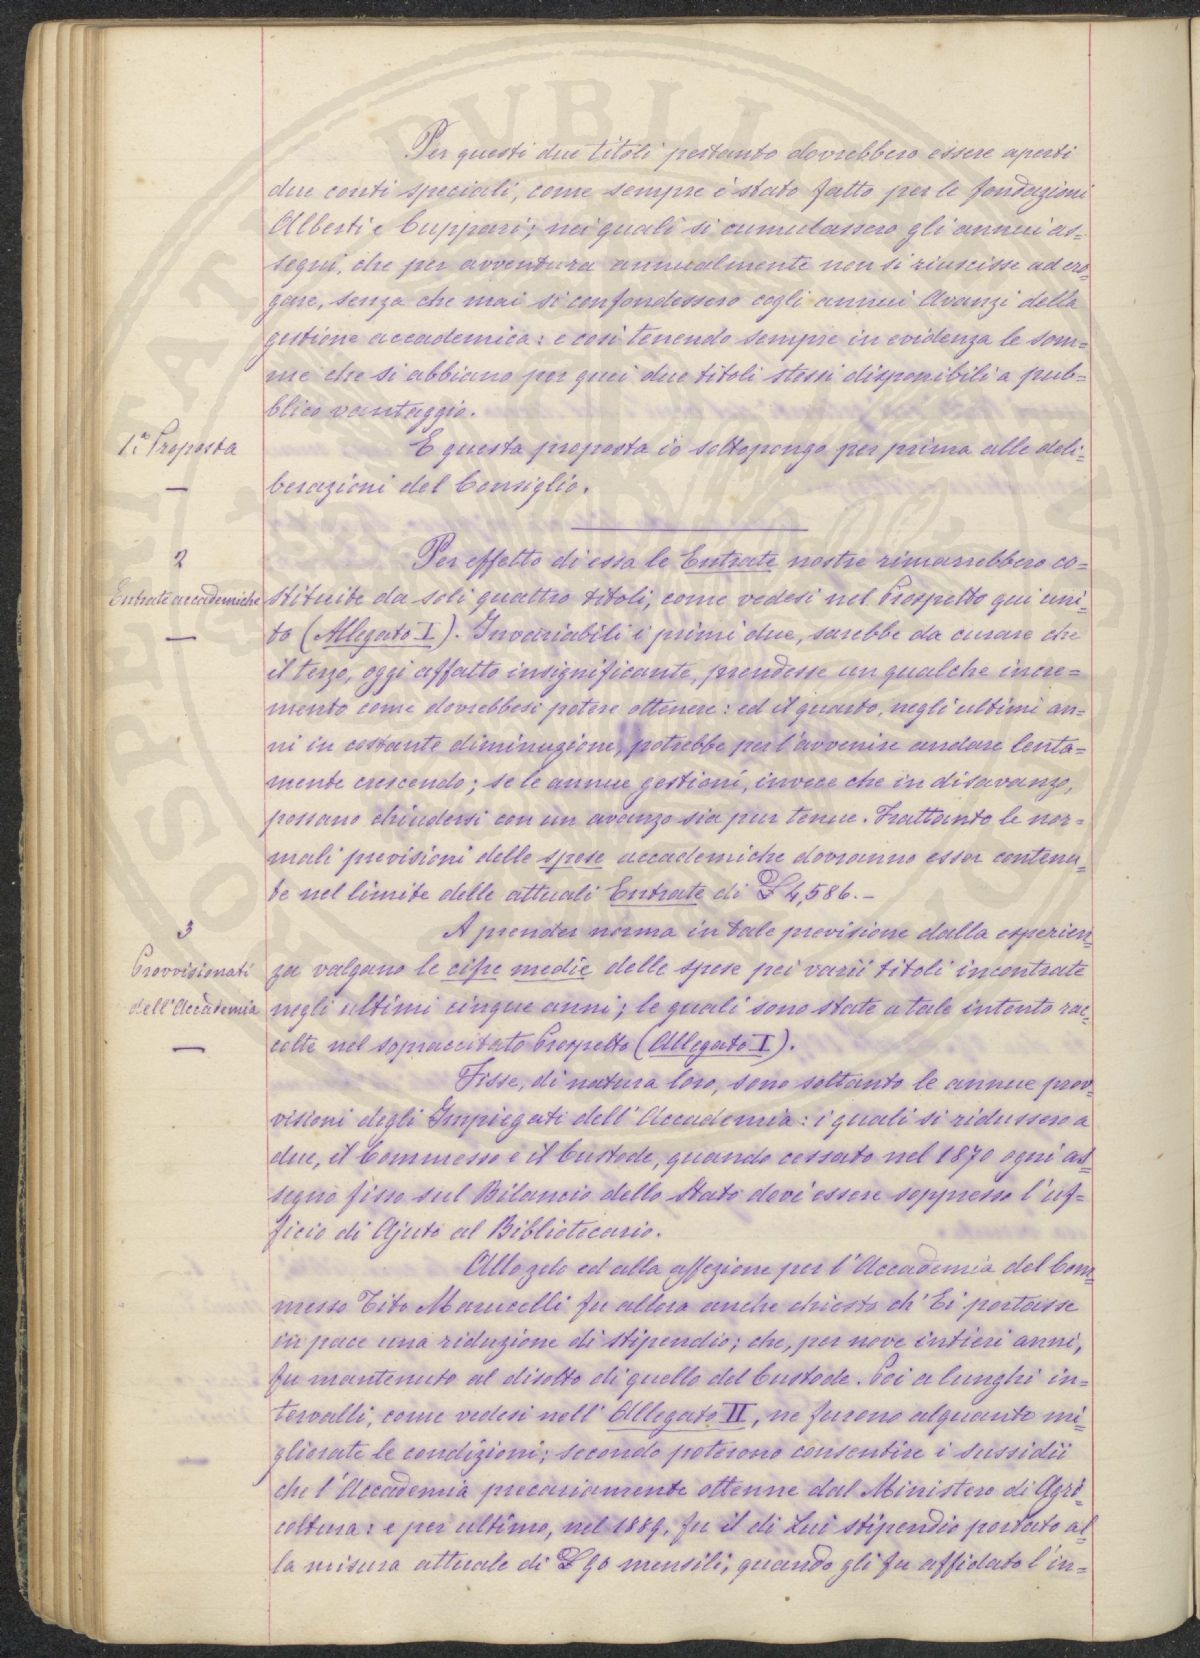 Per questi due titoli pertanto dovrebbero essere aperti
due conti speciali, come sempre è stato fatto per le fondazioni
Alberti e Cuppari; nei quali si cumulassero gli annui as=
segni, che per avventura annualmente non si riuscisse ad ero=
gare, senza che mai si confondessero cogli annui Avanzi della
gestione accademica: e così tenendo sempre in evidenza le som=
me che si abbiano per quei due titoli stessi disponibili a pub=
blico vantaggio.
1ª Proposta
E questa proposta io sottopongo per prima alle deli=
berazioni del Consiglio.
2
Entrate accademiche
Per effetto di essa le Entrate nostre rimarrebbero co=
stituite da soli quattro titoli, come vedesi nel Prospetto qui uni=
to (Allegato I). Invariabili i primi due, sarebbe da curare che
il terzo, oggi affatto insignificante, prendesse un qualche incre=
mento come dovrebbesi potere ottenere: ed il quarto, negli ultimi an=
ni in costante diminuzione, potrebbe per l'avvenire andare lenta=
mente crescendo; se le annue gestioni, invece che in disavanzo,
possano chiudersi con un avanzo sia pur tenue. Frattanto le nor=
mali previsioni delle spese accademiche dovranno esser contenu=
te nel limite delle attuali Entrate di £ 4,586.-
3
Provvisionati
dell'Accademia
A prender norma in tale previsione dalla esperien=
za valgano le cifre medie delle spese pei varii titoli incontrate
negli ultimi cinque anni; le quali sono state a tale intento rac=
colte nel sopraccitato Prospetto (Allegato I).
Fisse, di natura loro, sono soltanto le annue prov=
visioni degli Impiegati dell'Accademia: i quali si ridussero a
due, il Commesso e il Custode, quando cessato nel 1870 ogni as=
segno fisso sul Bilancio dello Stato dové essere soppresso l'uf=
ficio di Ajuto al Bibliotecario.
Allo zelo ed alla affezione per l'Accademia del Com=
messo Tito Marucelli fu allora anche chiesto ch'Ei portasse
in pace una riduzione di stipendio; che, per nove intieri anni,
fu mantenuto al disotto di quello del Custode. Poi a lunghi in=
tervalli, come vedesi nell'Allegato II, ne furono alquanto mi=
gliorate le condizioni; secondo poterono consentire i sussidii
che l'Accademia precariamente ottenne dal Ministero di Agri=
coltura: e per ultimo, nel 1889, fu il di Lui stipendio portato al=
la misura attuale di £ 90 mensili; quando gli fu affidato l'in=